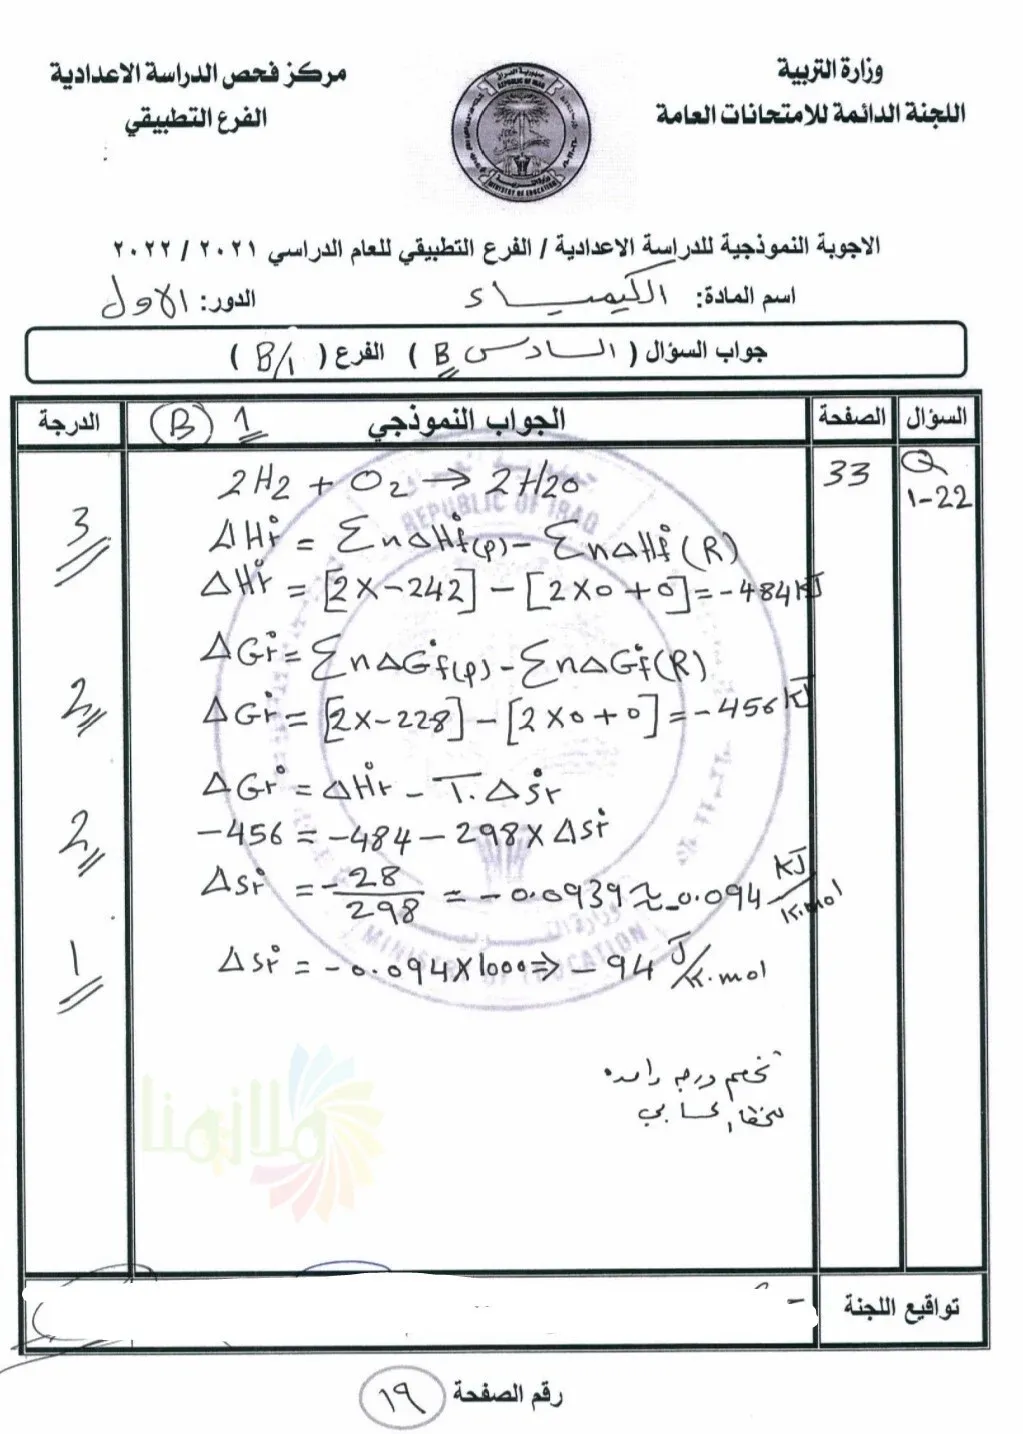 وزارة التربية
اللجنة الدائمة للامتحانات العامة
مركز فحص الدراسة الاعدادية
الفرع التطبيقي
الاجوبة النموذجية للدراسة الاعدادية / الفرع التطبيقي للعام الدراسي ٢٠٢١ / ٢٠٢٢
اسم المادة: الكيمياء الدور: الاول
جواب السؤال ( السادس B ) الفرع ( B/١ )
السؤال الصفحة الجواب النموذجي 1 (B) الدرجة
Q 1-22
33
2H2 + O2 → 2H2O
3
ΔHr° = Σn ΔHf°(p) - Σn ΔHf°(R)
ΔHr° = [2 X -242] - [2 X 0 + 0] = -484 kJ
ΔGr° = Σn ΔGf°(p) - Σn ΔGf°(R)
2
ΔGr° = [2X-228] - [2 X 0 + 0] = -456 kJ
ΔGr° = ΔHr° - T. ΔSr°
2
-456 = -484 - 298 X ΔSr°
ΔSr° = -28/298 = -0.0939 ≈ -0.094 KJ/K.mol
1
ΔSr° = -0.094 X 1000 ⇒ -94 J/K.mol
تخصم درجة واحدة
للخطأ الحسابي
ملازمنا
REPUBLIC OF IRAQ
MINISTRY OF EDUCATION
تواقيع اللجنة
رقم الصفحة ١٩